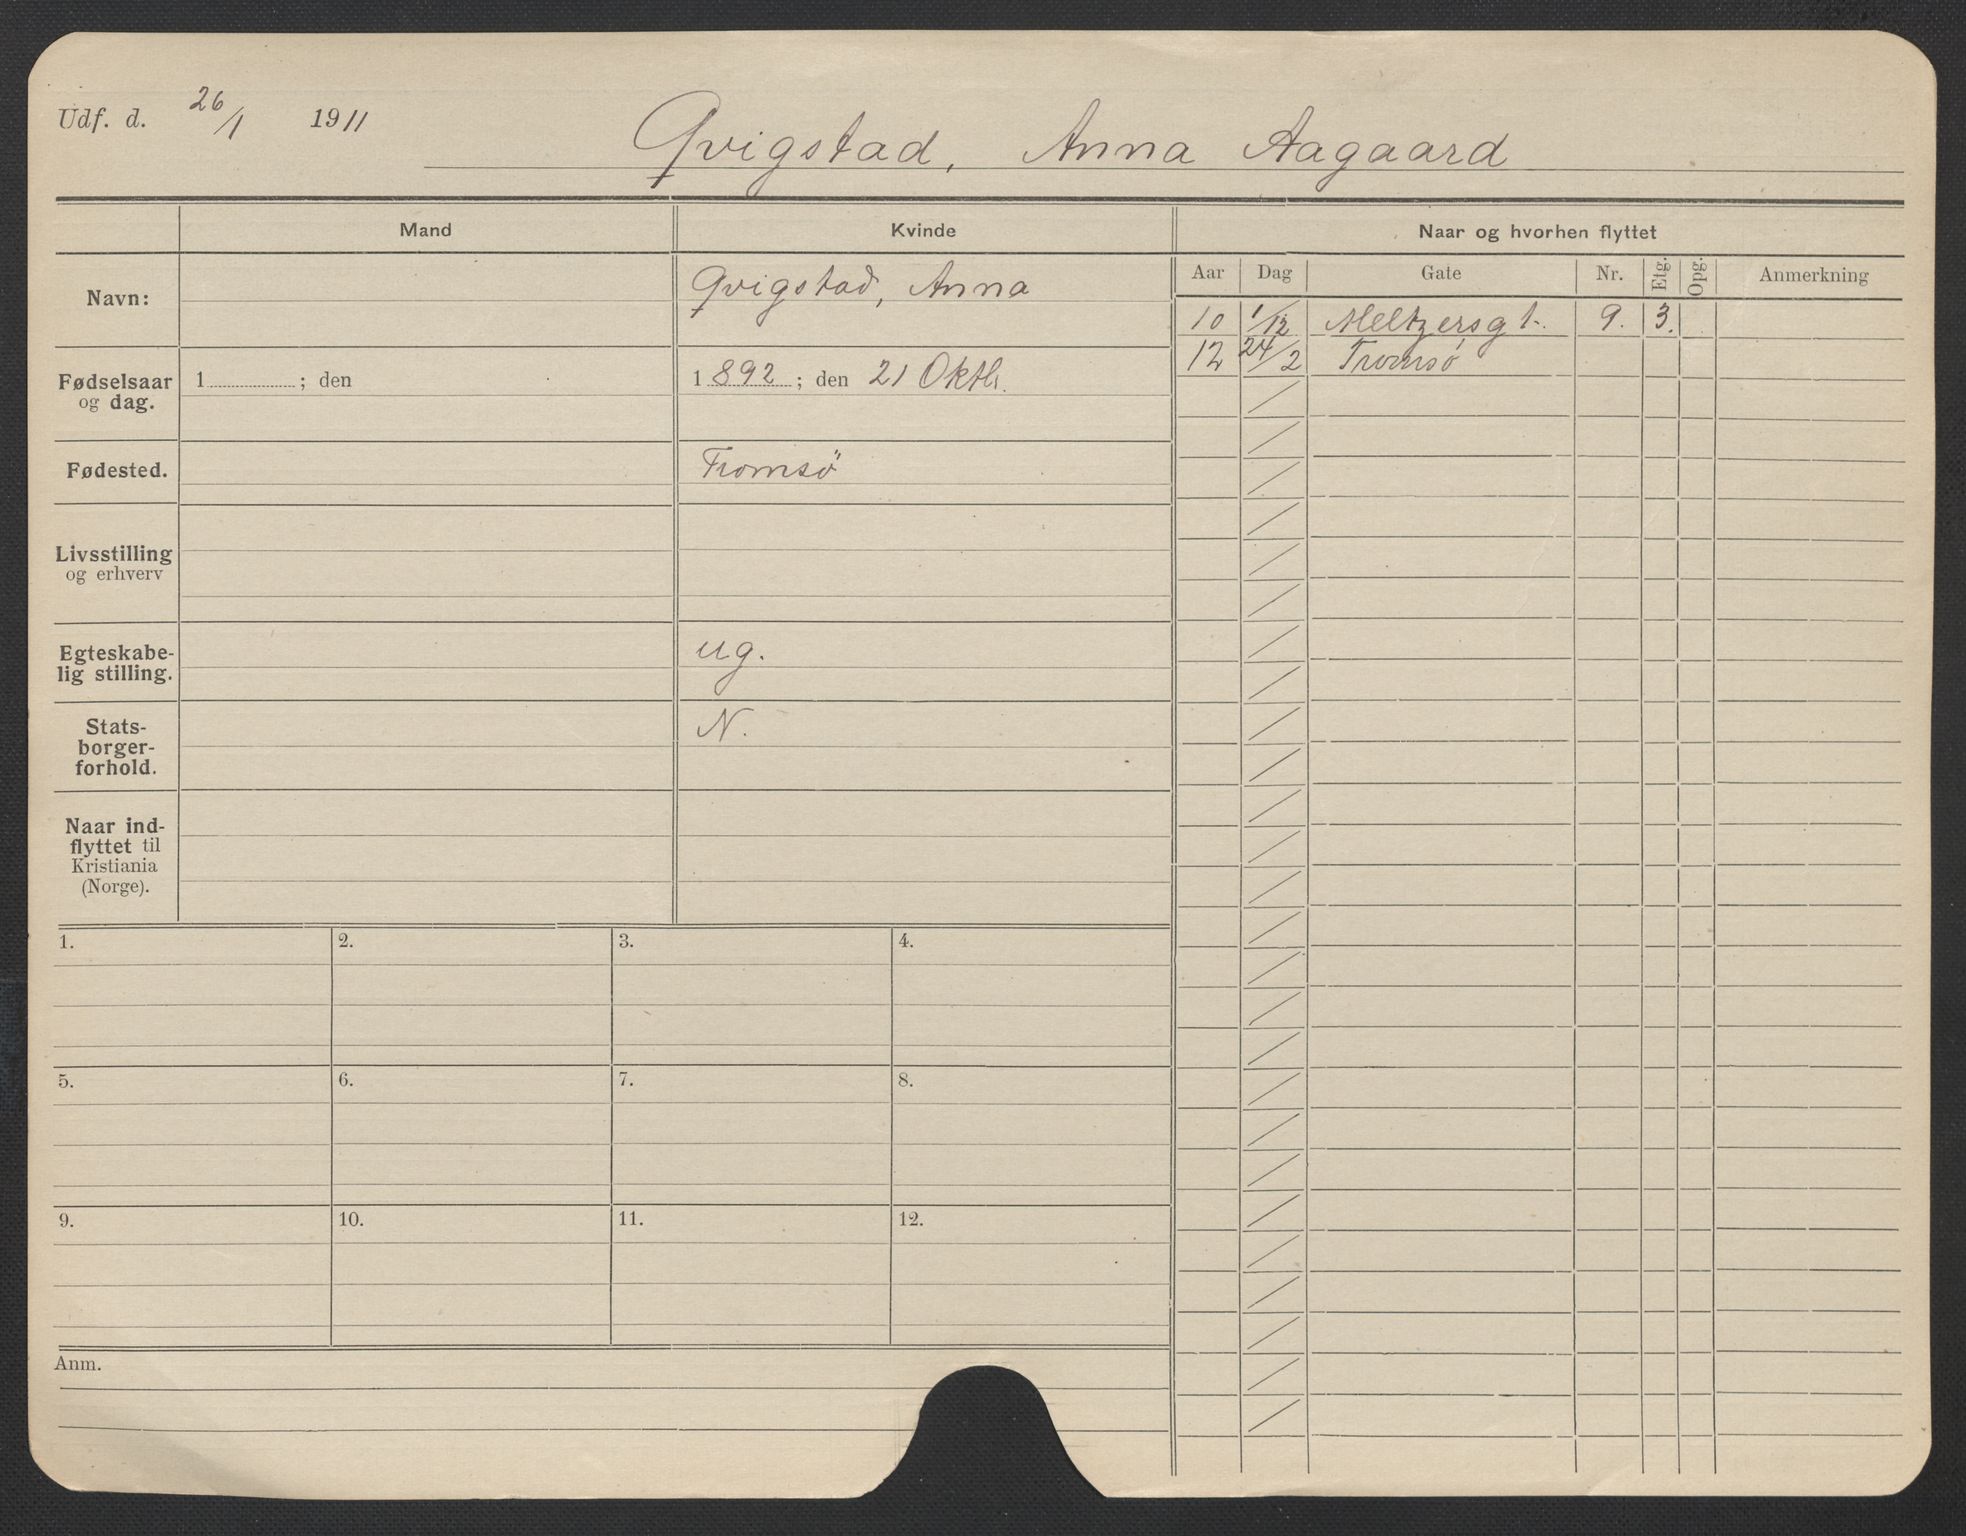 Udf. d. 26/1 1911
Qvigstad, Anna Aagaard
Mand
Kvinde
Naar og hvorhen flyttet
Navn:
Qvigstad, Anna
Fødselsaar
og dag.
1 ; den
1892 ; den 21 Oktb.
Fødested.
Tromsö
Livsstilling
og erhverv
Egteskabe-
lig stilling.
ug.
Stats-
borger-
forhold.
N.
Naar ind-
flyttet til
Kristiania
(Norge).
Aar Dag Gate Nr. Etg. Opg. Anmerkning
10 1/12 Meltzersgt. 9. 3.
12 24/2 Tromsø
1. 2. 3. 4.
5. 6. 7. 8.
9. 10. 11. 12.
Anm.